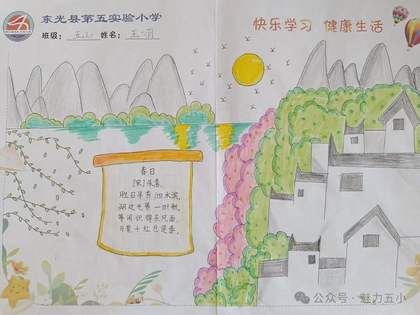 东光县第五实验小学
班级: 姓名:
快乐学习 健康生活
春日
[宋]朱熹
胜日寻芳泗水滨,
无边光景一时新。
等闲识得东风面,
万紫千红总是春。
公众号·魅力五小